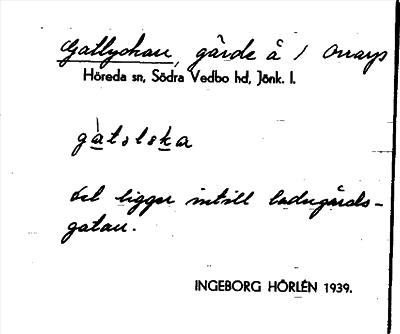 Gatlyckan, gärde å 1 Orrarp
Höreda sn, Södra Vedbo hd, Jönk. l.
gàtslska
det ligger intill ladugårds-
gatan.
INGEBORG HÖRLÉN 1939.